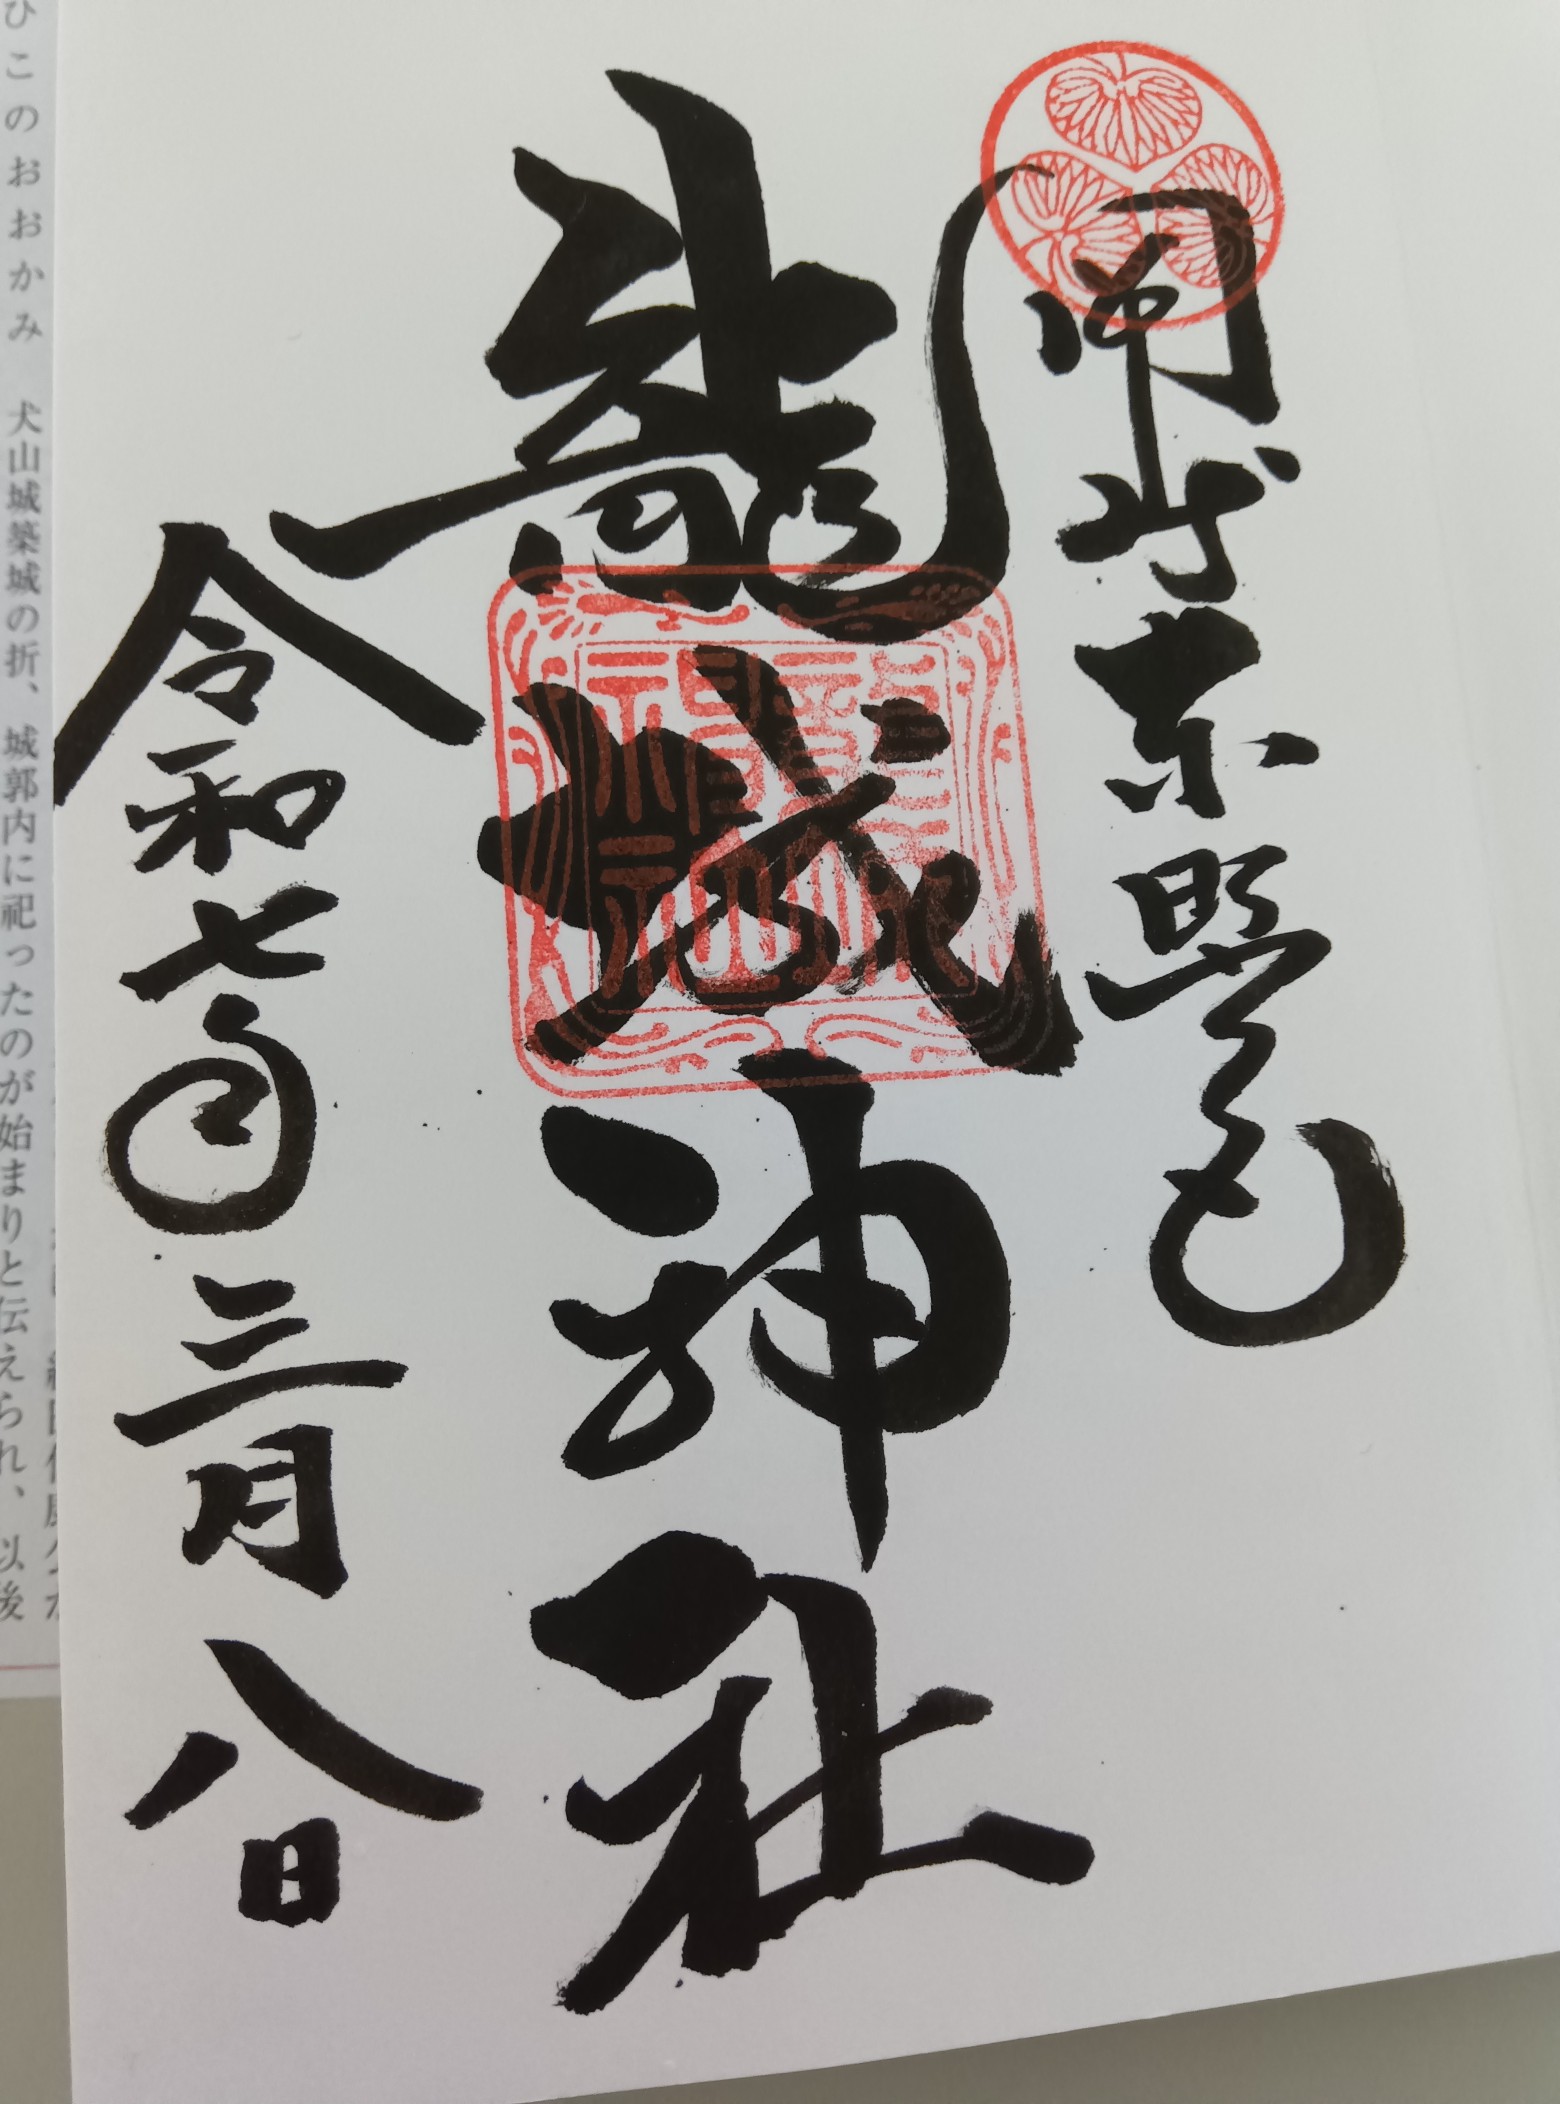 開運東照宮
龍城神社
令和七年三月八日
ひこのおおかみ 犬山城築城の折、城郭内に祀ったのが始まりと伝えられ、以後